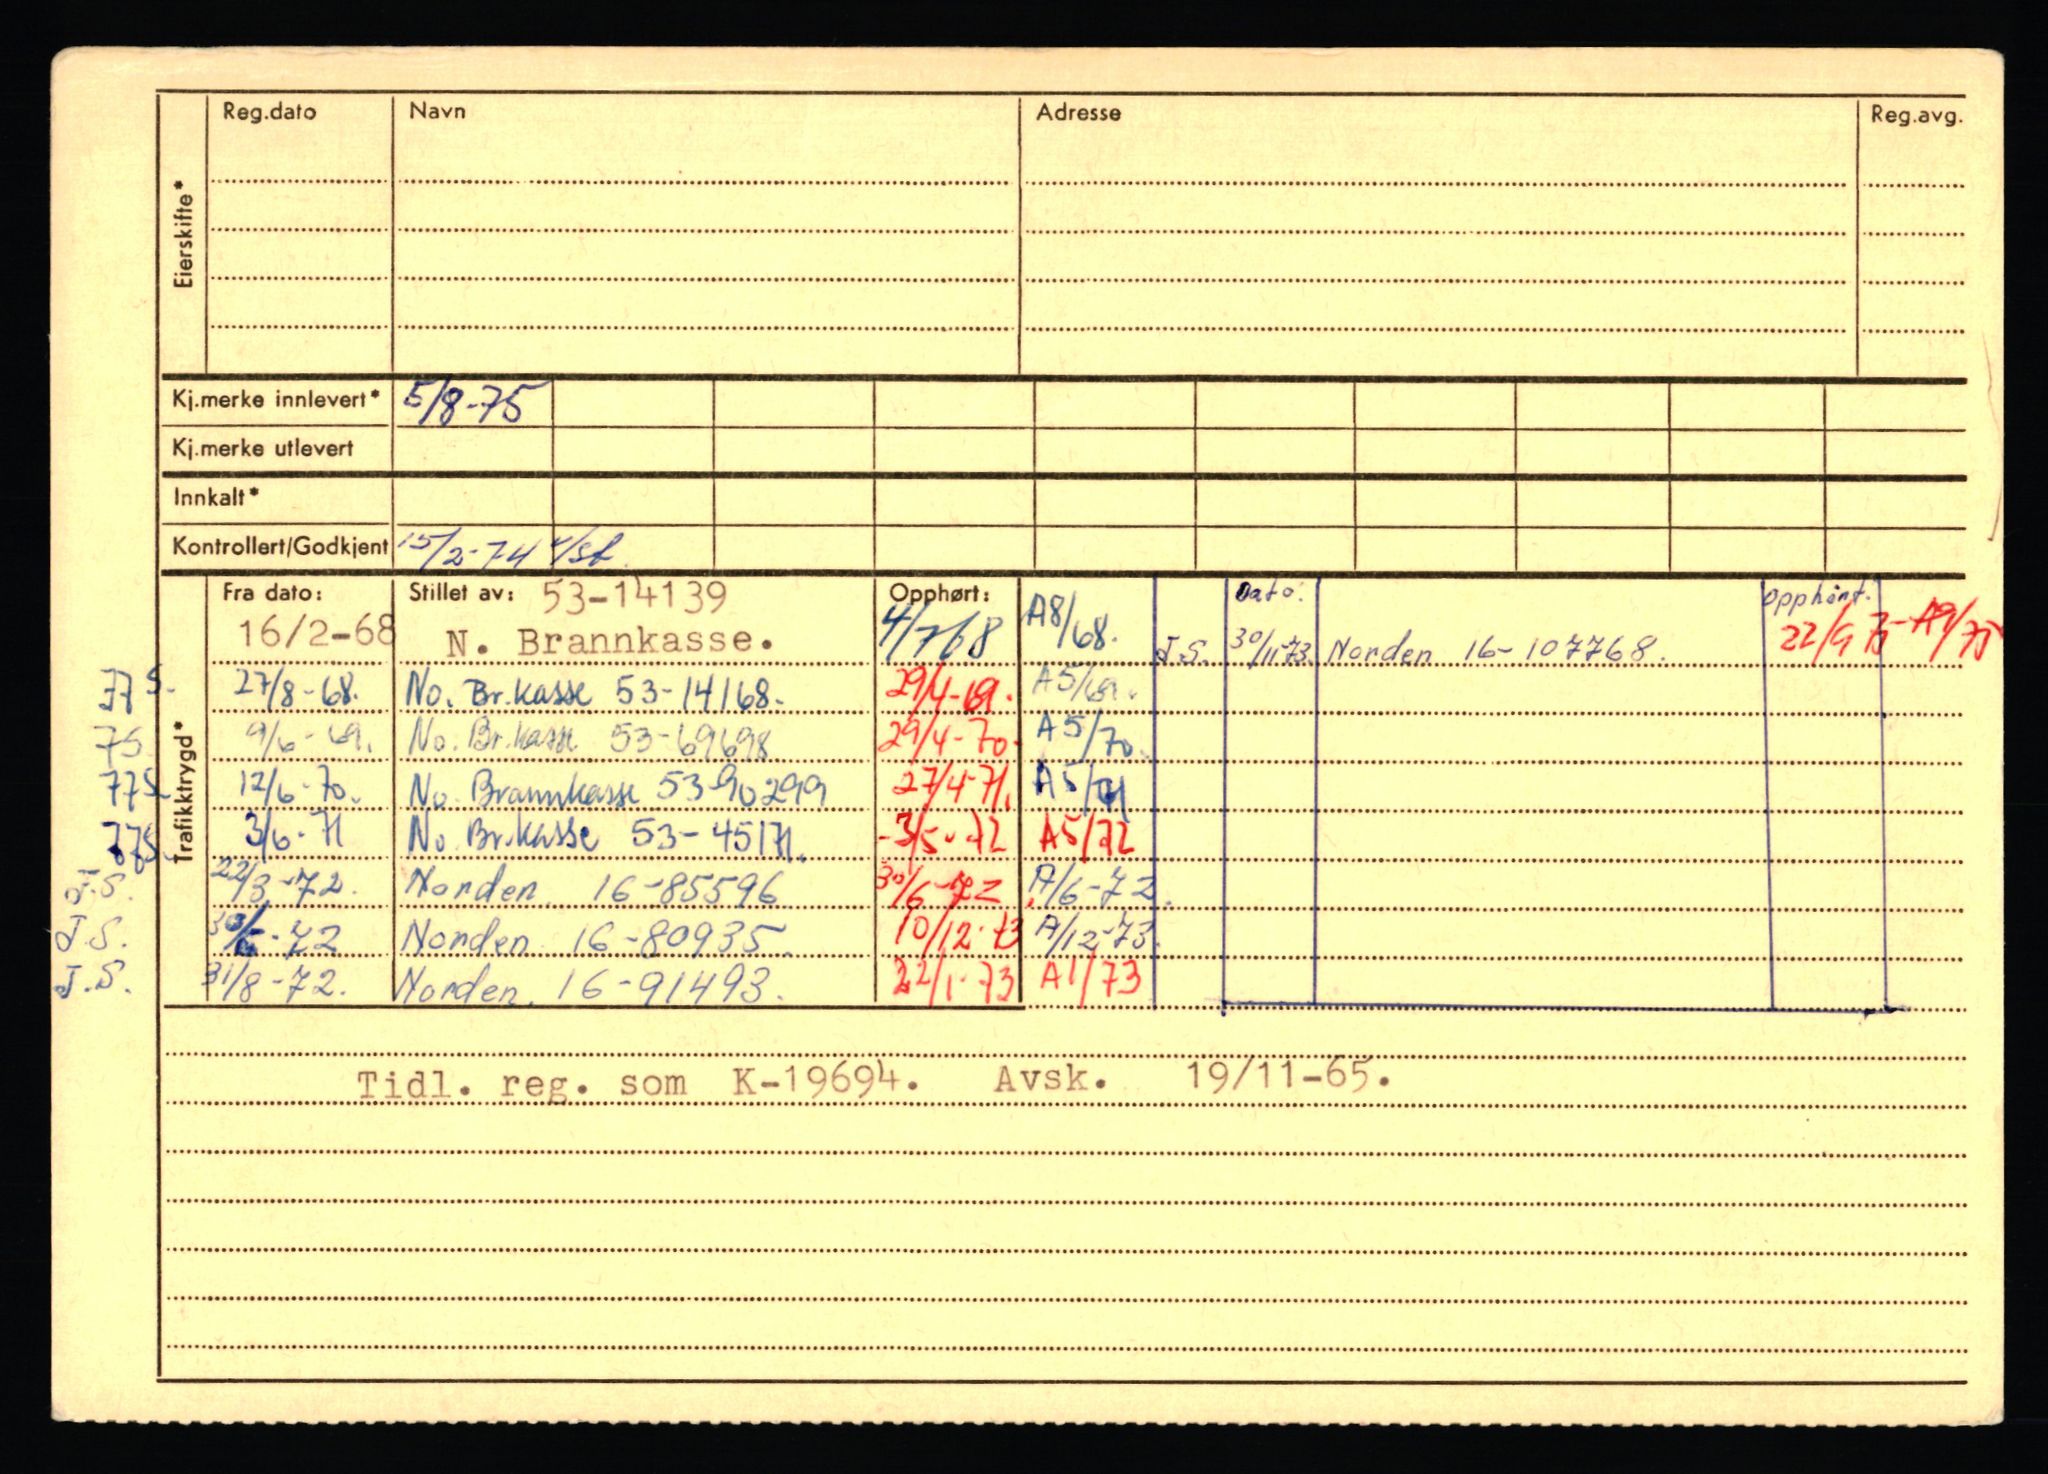 Reg.dato Navn Adresse Reg.avg.
Eierskifte*
Kj.merke innlevert* 5/8-75
Kj.merke utlevert
Innkalt*
Kontrollert/Godkjent 15/2-74 v/st
Trafikktrygd*
Fra dato: Stillet av: 53-14139 Opphørt: Dato: Opphørt:
16/2-68 N. Brannkasse. 4/7 68 A8/68. J.S. 30/11-73. Norden 16-107768. 22/9 75 - A9/75
27/8-68. No. Br.kasse 53-14168. 29/4-69. A5/69.
9/6-69. No. Br.kasse 53-69698 29/4-70. A5/70.
12/6-70. No. Brannkasse 53-90299 27/4-71. A5/71
3/6-71 No. Br.kasse 53-45171. 3/5-72 A5/72
J.S. 22/3-72. Norden 16-85596 30/6-72 A/6-72.
J.S. 30/6-72 Norden 16-80935. 10/12-73 A/12-73.
J.S. 31/8-72. Norden. 16-91493. 22/1-73 A1/73
Tidl. reg. som K-19694. Avsk. 19/11-65.